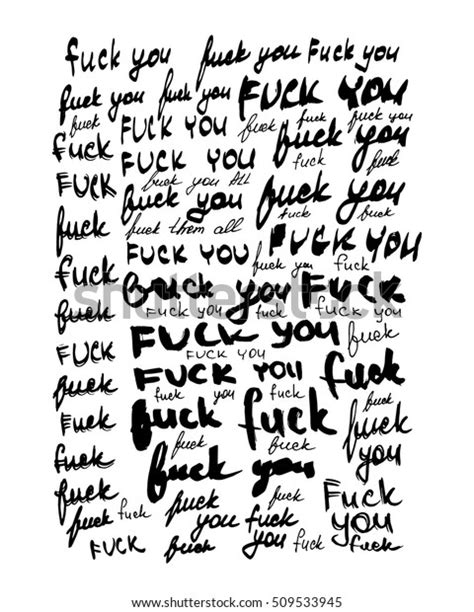 fuck you fuck you Fuck you
fuck you fuck you FUCK YOU
fuck FUCK YOU fuck fuck fuck you
fuck fuck you
FUCK YOU fuck fuck
FUCK fuck you all fuck you
fuck you fuck fuck
fuck fuck them all
FUCK YOU FUCK YOU
fuck fuck you fuck
fuck you FUCK
shutterstock
fuck FUCK YOU fuck FUCK YOU
FUCK YOU fuck
FUCK FUCK YOU
FUCK YOU fuck
fuck fuck you fuck
fuck fuck fuck
Fuck fuck
fuck fuck you
fuck fuck you
fuck fuck fuck Fuck
fuck fuck you fuck you
FUCK fuck you fuck fuck
shutterstock.com · 509533945